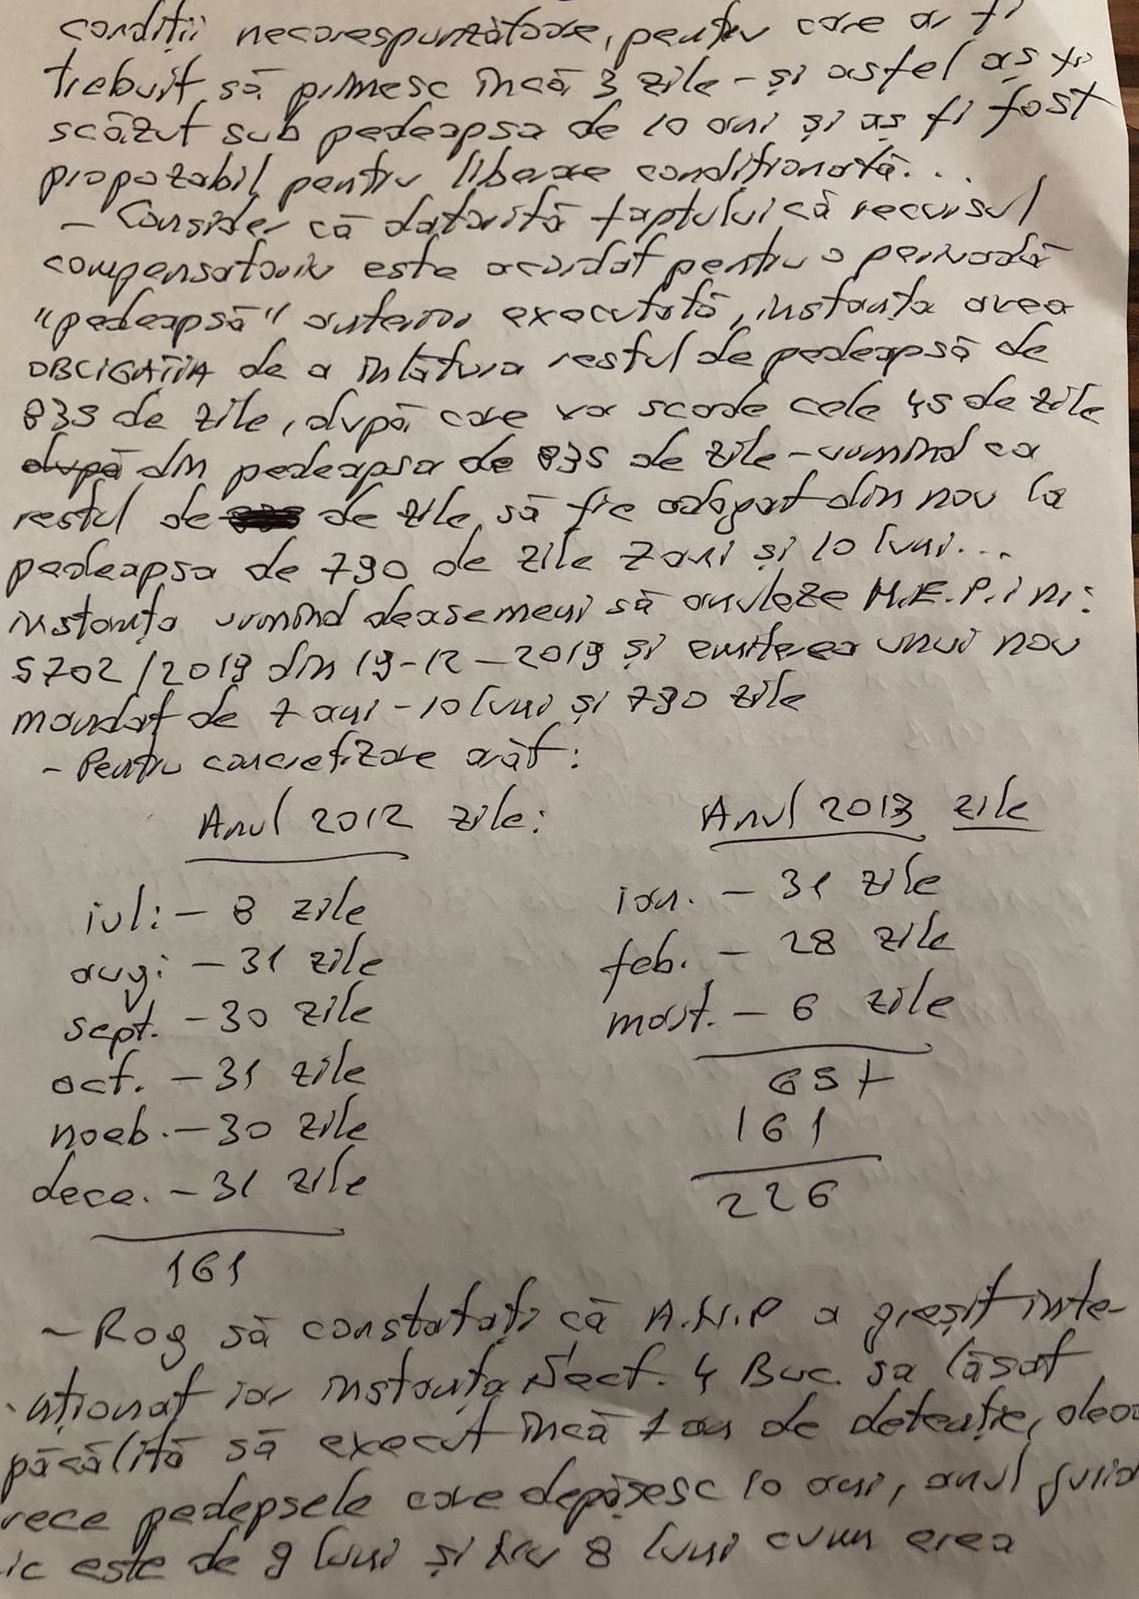 condiții necorespunzătoare, pentru care ar fi
trebuit să primesc încă 3 zile - și astfel aș fi
scăzut sub pedeapsa de 10 ani și aș fi fost
propozabil pentru liberare condiționată...
- Consider că datorită faptului că recursul
compensatoriu este acordat pentru o perioadă
"pedeapsă" anterior executată, instanța avea
OBLIGAȚIA de a înlătura restul de pedeapsă de
835 de zile, după care va scade cele 45 de zile
după din pedeapsa de 835 de zile - urmînd ca
restul de de zile să fie adăogat din nou la
pedeapsa de 790 de zile 7 ani și 10 luni...
instanța urmînd deasemeni să anuleze M.E.P.I nr:
5702/2019 din 19-12-2019 și emiterea unui nou
mandat de 7 ani - 10 luni și 790 zile
- Pentru concretizare arăt:
Anul 2012 zile:
iul: - 8 zile
aug: - 31 zile
sept. - 30 zile
oct. - 31 zile
noeb. - 30 zile
dece. - 31 zile
161
Anul 2013 zile
ian. - 31 zile
feb. - 28 zile
mart. - 6 zile
65 +
161
226
- Rog să constatați că A.N.P a greșit inte-
nționat iar instanța Sect. 4 Buc. sa lăsat
păcălită să execut încă 1 an de detenție, deoa
rece pedepsele care depășesc 10 ani, anul jurid
ic este de 9 luni și nu 8 luni cum erea